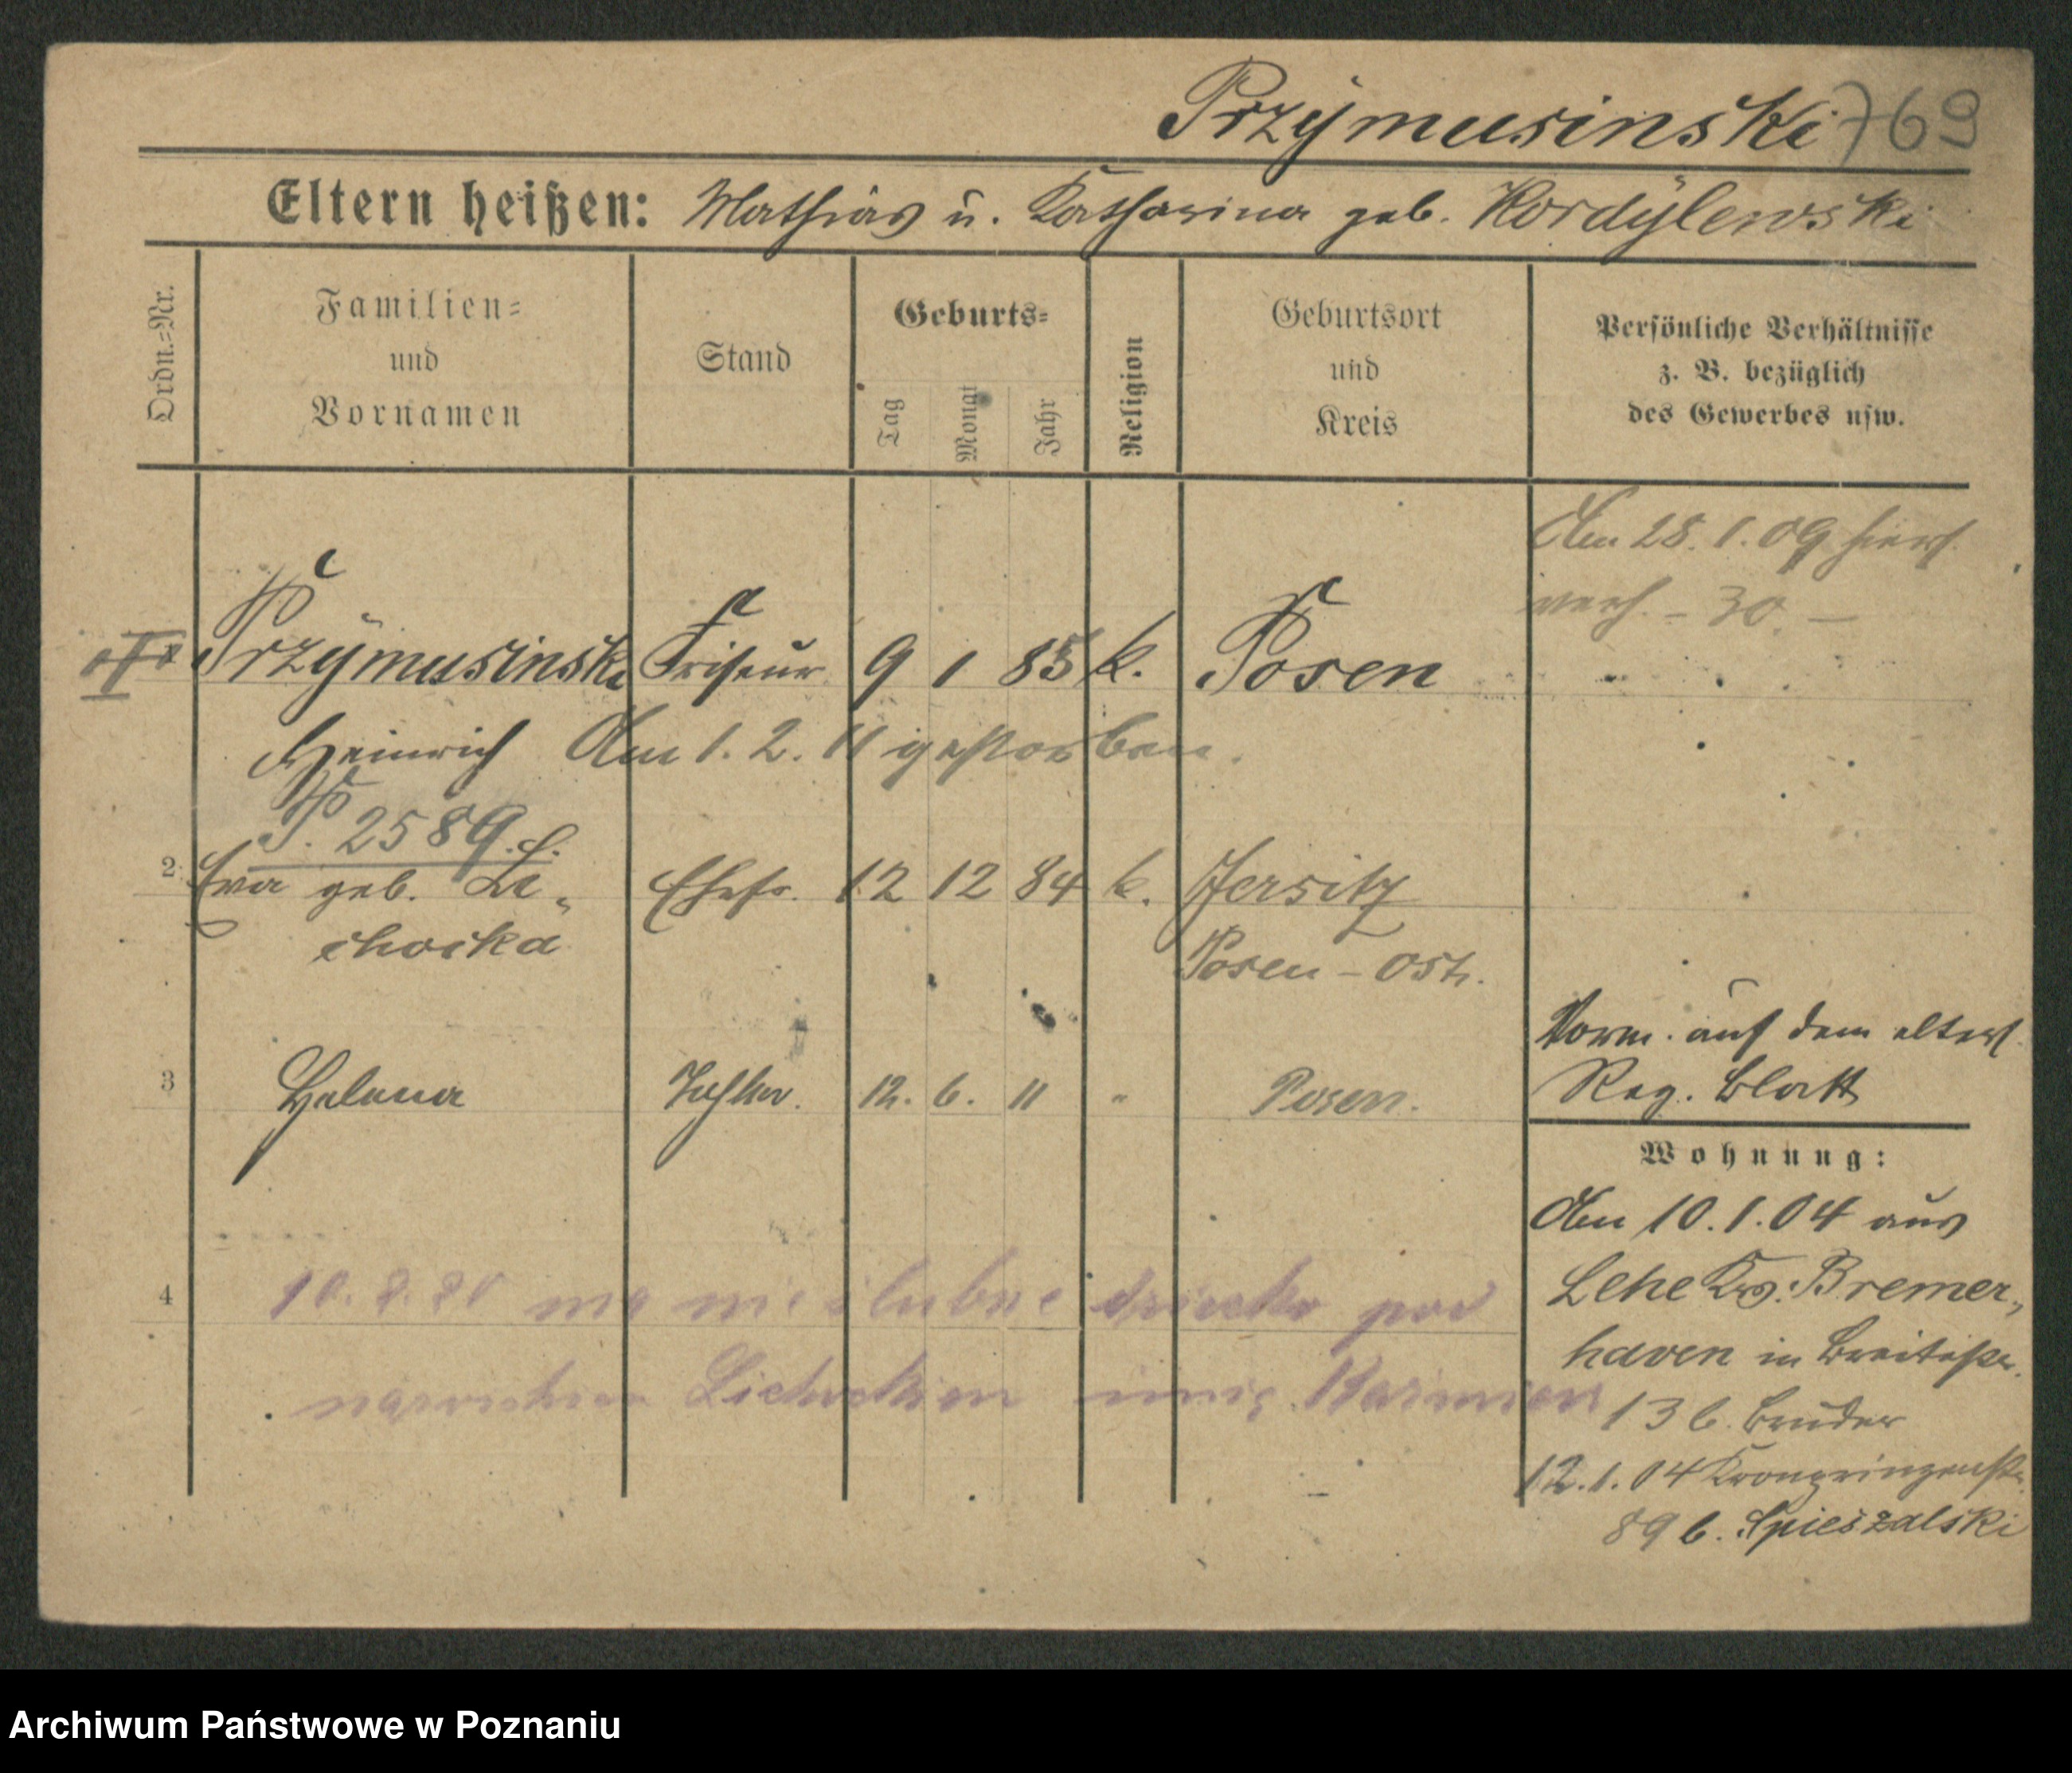 Przymusinski 769
Eltern heißen: Mathias u. Katharina geb. Kordylewski
Ordn.-Nr.
Familien- und Vornamen
Stand
Geburts-
Tag Monat Jahr
Religion
Geburtsort und Kreis
Persönliche Verhältnisse z. B. bezüglich des Gewerbes usw.
Am 28. 1. 09
verh. - 30. -
Przymusinski Friseur 9 1 85 k. Posen
Heinrich Am 1. 2. 11 gestorben.
P. 2589.
2 Eva geb. Li- Ehefr. 12 12 84 k. Jersitz
chocka Posen-Ost.
Vorm. auf dem elterl.
Reg. Blatt
3 Helena Tochter. 12. 6. 11 " Posen.
Wohnung:
Am 10. 1. 04 aus
Lehe Krs. Bremer-
haven in Breitestr.
13 b. Bruder
12. 1. 04 Kronprinzenstr.
89 b. Spieszalski
4 ma nieślubne dziecko pod
nazwiskiem
Archiwum Państwowe w Poznaniu